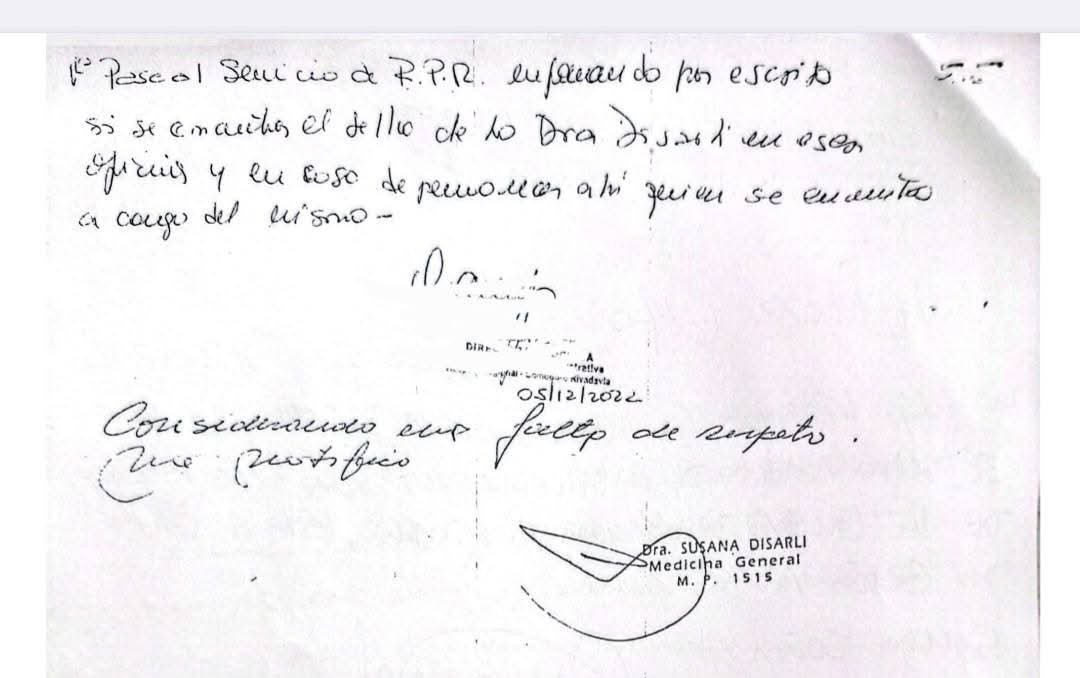 Pase al Servicio de R.P.R. informando por escrito
si se encuentra el sello de la Dra Disarli en esa
oficina y en caso de permanecer ahi quien se encuentra
a cargo del mismo-
05/12/2022
Considerando una falta de respeto.
me notifico
Dra. SUSANA DISARLI
Medicina General
M. P. 1515